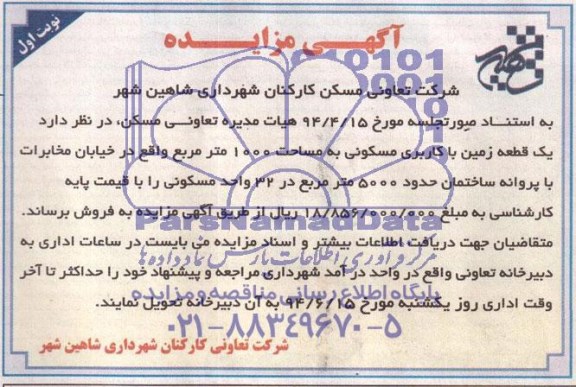 نوبت اول
آگهی مزایده
شرکت تعاونی مسکن کارکنان شهرداری شاهین شهر
به استناد صورتجلسه مورخ ۹۴/۴/۱۵ هیات مدیره تعاونی مسکن، در نظر دارد
یک قطعه زمین با کاربری مسکونی به مساحت ۱۰۰۰ متر مربع واقع در خیابان مخابرات
با پروانه ساختمان حدود ۵۰۰۰ متر مربع در ۳۲ واحد مسکونی را با قیمت پایه
کارشناسی به مبلغ ۱۸/۸۵۶/۰۰۰/۰۰۰ ریال از طریق آگهی مزایده به فروش برساند.
ParsNamadData
متقاضیان جهت دریافت اطلاعات بیشتر و اسناد مزایده می بایست در ساعات اداری به
مرکز فرآوری اطلاعات پارس نماد داده ها
دبیرخانه تعاونی واقع در واحد در آمد شهرداری مراجعه و پیشنهاد خود را حداکثر تا آخر
پایگاه اطلاع رسانی مناقصه و مزایده
وقت اداری روز یکشنبه مورخ ۹۴/۶/۱۵ به آن دبیرخانه تحویل نمایند.
۰۲۱-۸۸۳۴۹۶۷۰-۵
شرکت تعاونی کارکنان شهرداری شاهین شهر